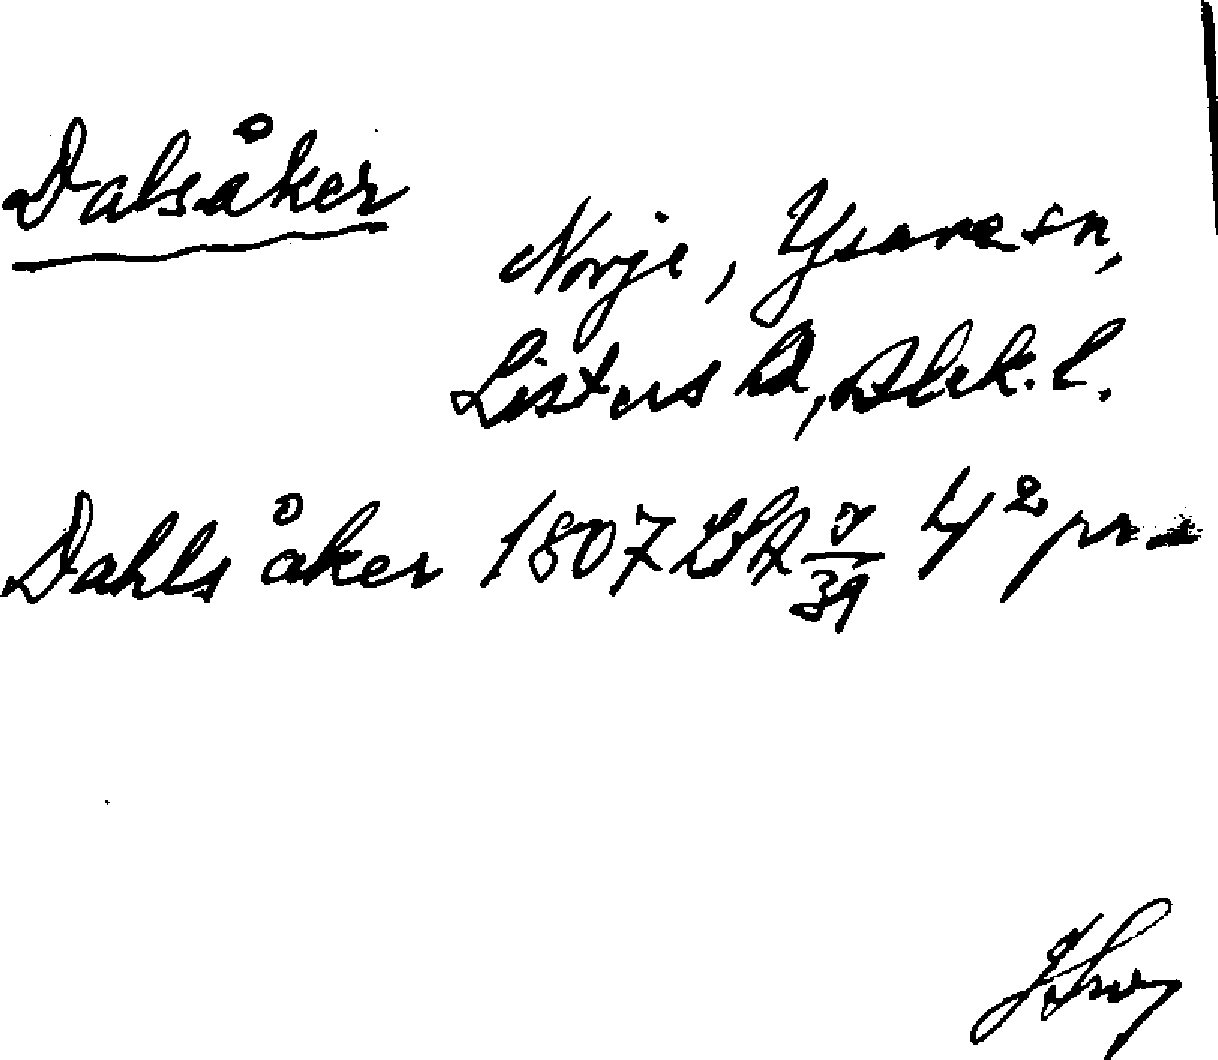 Dalsåker
Norje, Ysane sn,
Listers hd, Blek. l.
Dahls åker 1807 LSA Y/39 4² pr